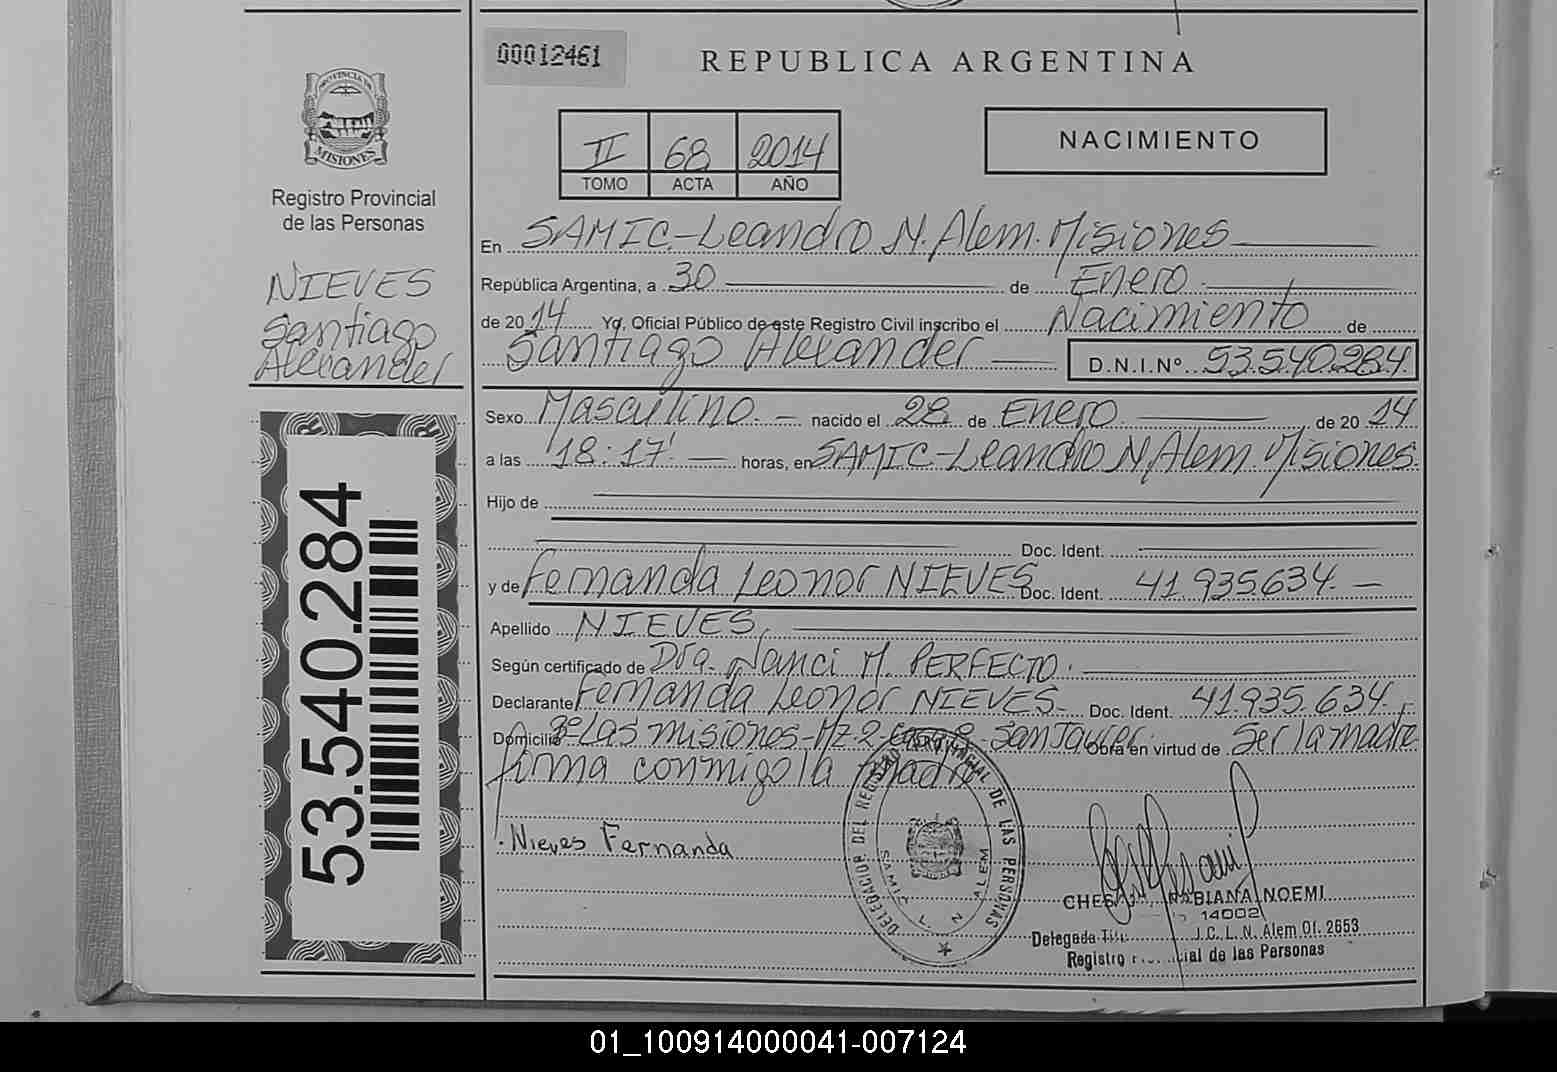 00012461
REPUBLICA ARGENTINA
PROVINCIA
MISIONES
Registro Provincial
de las Personas
NIEVES
Santiago
Alexander
II 68 2014
TOMO ACTA AÑO
NACIMIENTO
En SAMIC-Leandro N. Alem. Misiones
República Argentina, a 30 de Enero
de 2014 Yo, Oficial Público de este Registro Civil inscribo el Nacimiento de
Santiago Alexander D.N.I.Nº 53.540.284.
Sexo Masculino.- nacido el 28 de Enero. de 20 14
a las 18:17' horas, en SAMIC-Leandro N. Alem. Misiones.
Hijo de
Doc. Ident.
y de Fernanda Leonor NIEVES Doc. Ident. 41.935.634.-
Apellido NIEVES.
Según certificado de Dra. Nanci M. PERFECTO.
Declarante Fernanda Leonor NIEVES- Doc. Ident. 41.935.634.-
Domicilio Las misiones-Mz-2 San Javier. Obra en virtud de Ser la madre
firma conmigo la madre
Nieves Fernanda
DELEGACION DEL REGISTRO PROVINCIAL DE LAS PERSONAS
SAMIC L. N. ALEM
FABIANA NOEMI
14002
Delegada J.C. L. N. Alem Of. 2653
Registro Provincial de las Personas
53.540.284
01_100914000041-007124